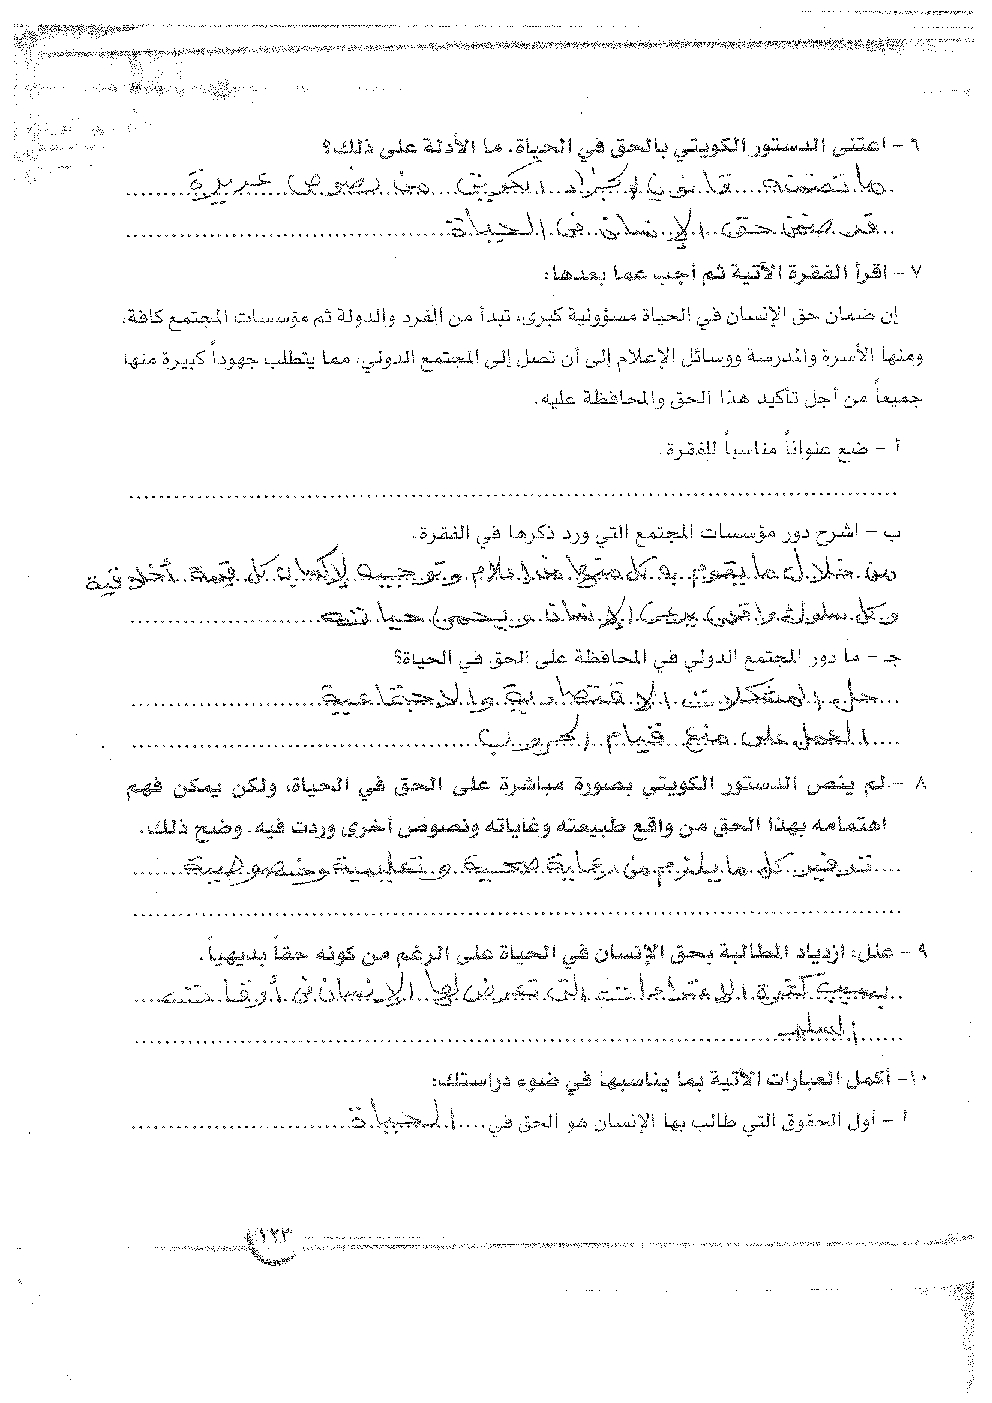 ٦ - اعتنى الدستور الكويتي بالحق في الحياة. ما الأدلة على ذلك؟
ما تضمنه قانون الجزاء الكويتي من نصوص عديدة
قد ضمن حق الإنسان في الحياة
٧ - اقرأ الفقرة الآتية ثم أجب عما بعدها:
إن ضمان حق الإنسان في الحياة مسؤولية كبرى، تبدأ من الفرد والدولة ثم مؤسسات المجتمع كافة،
ومنها الأسرة والمدرسة ووسائل الإعلام إلى أن تصل إلى المجتمع الدولي، مما يتطلب جهوداً كبيرة منها
جميعاً من أجل تأكيد هذا الحق والمحافظة عليه.
أ - ضع عنواناً مناسباً للفقرة.
ب - اشرح دور مؤسسات المجتمع التي ورد ذكرها في الفقرة.
من خلال ما يقوم به كل منها من اعلام وتوجيه لإكساب كل قيمة أخلاقية
وكل سلوك الإنسان ويحمى حياته
جـ - ما دور المجتمع الدولي في المحافظة على الحق في الحياة؟
حل المشكلات الاقتصادية والاجتماعية
العمل على منع قيام الحروب
٨ - لم ينص الدستور الكويتي بصورة مباشرة على الحق في الحياة، ولكن يمكن فهم
اهتمامه بهذا الحق من واقع طبيعته وغاياته ونصوص أخرى وردت فيه. وضح ذلك.
توفير كل ما يلزم من رعاية صحية وتعليمية
٩ - علل: ازدياد المطالبة بحق الإنسان في الحياة على الرغم من كونه حقاً بديهياً.
بسبب كثرة الاعتداءات التى تعرض لها الإنسان فى أوقات
السلم
١٠- أكمل العبارات الآتية بما يناسبها في ضوء دراستك:
أ - أول الحقوق التي طالب بها الإنسان هو الحق في الحياة
١٢٣